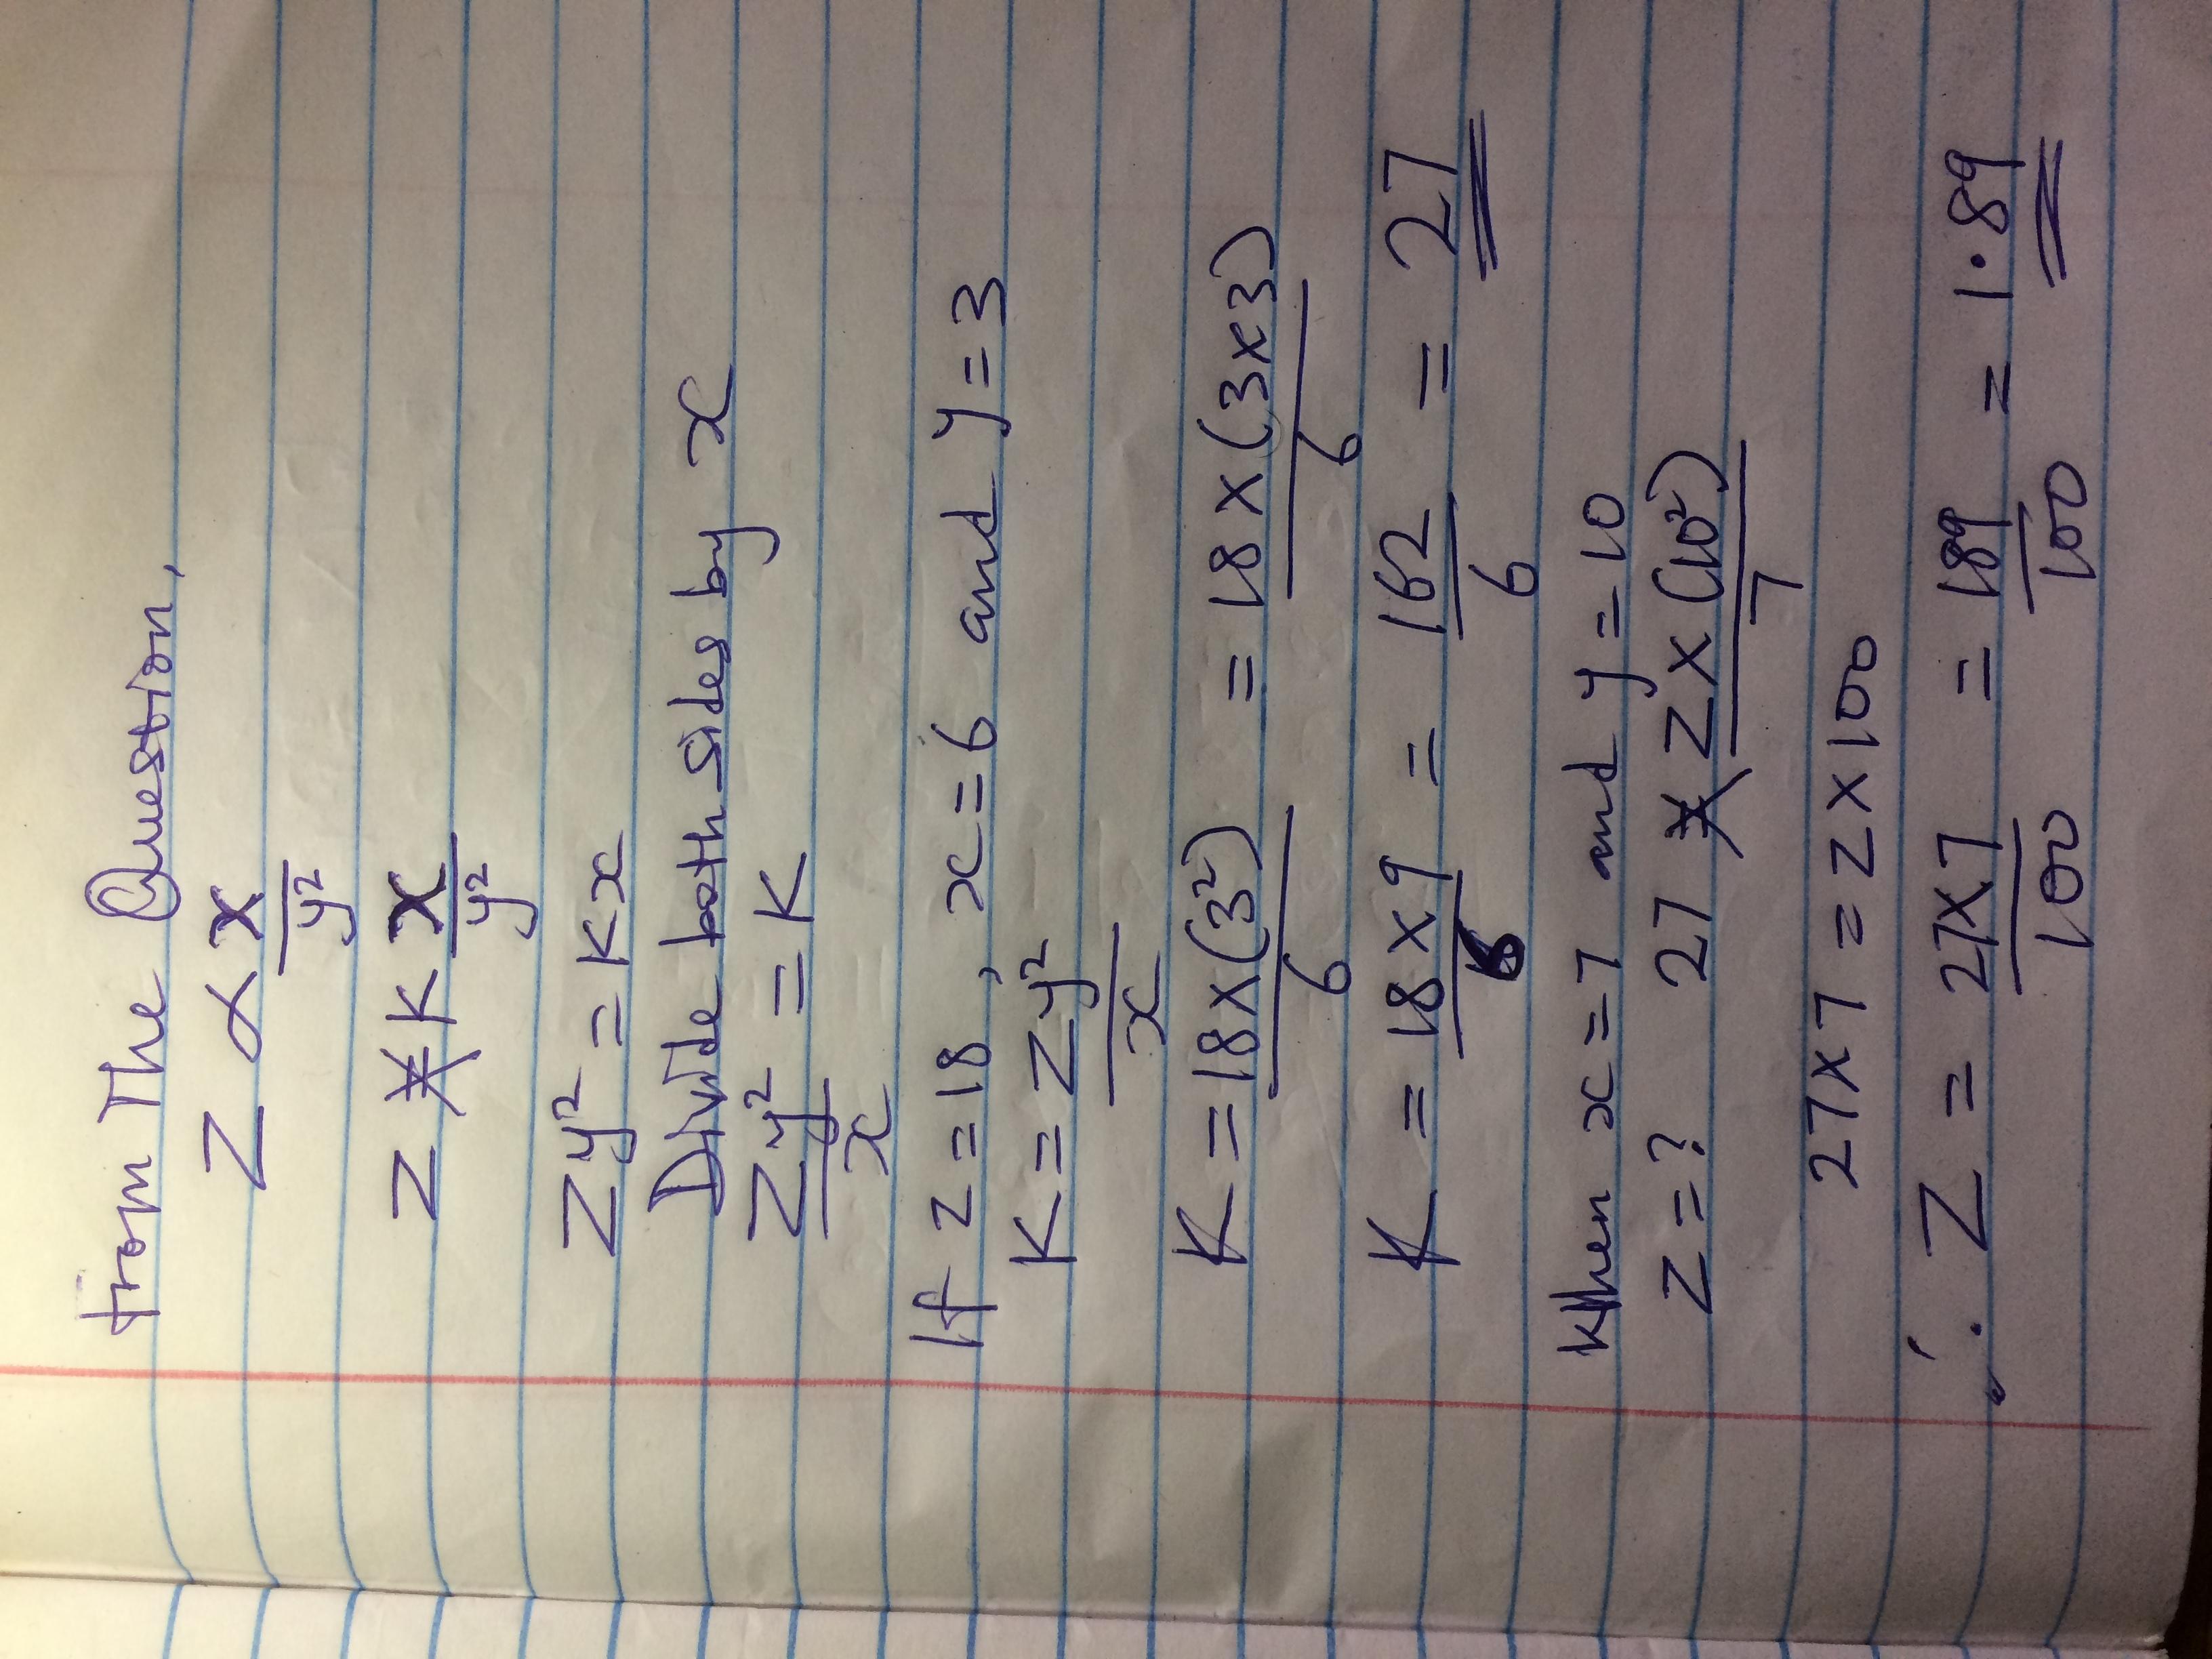 From The Question,
Z ∝ x/y²
Z K x/y²
Zy² = Kx
Divide both sides by x
Zy²/x = K
If z = 18, x = 6 and y = 3
K = Zy²/x
K = 18 x (3²)/6 = 18 x (3x3)/6
K = 18 x 9/6 = 162/6 = 27
When x = 7 and y = 10
Z = ? 27 Z x (10²)/7
27 x 7 = Z x 100
∴ Z = 27x7/100 = 189/100 = 1.89